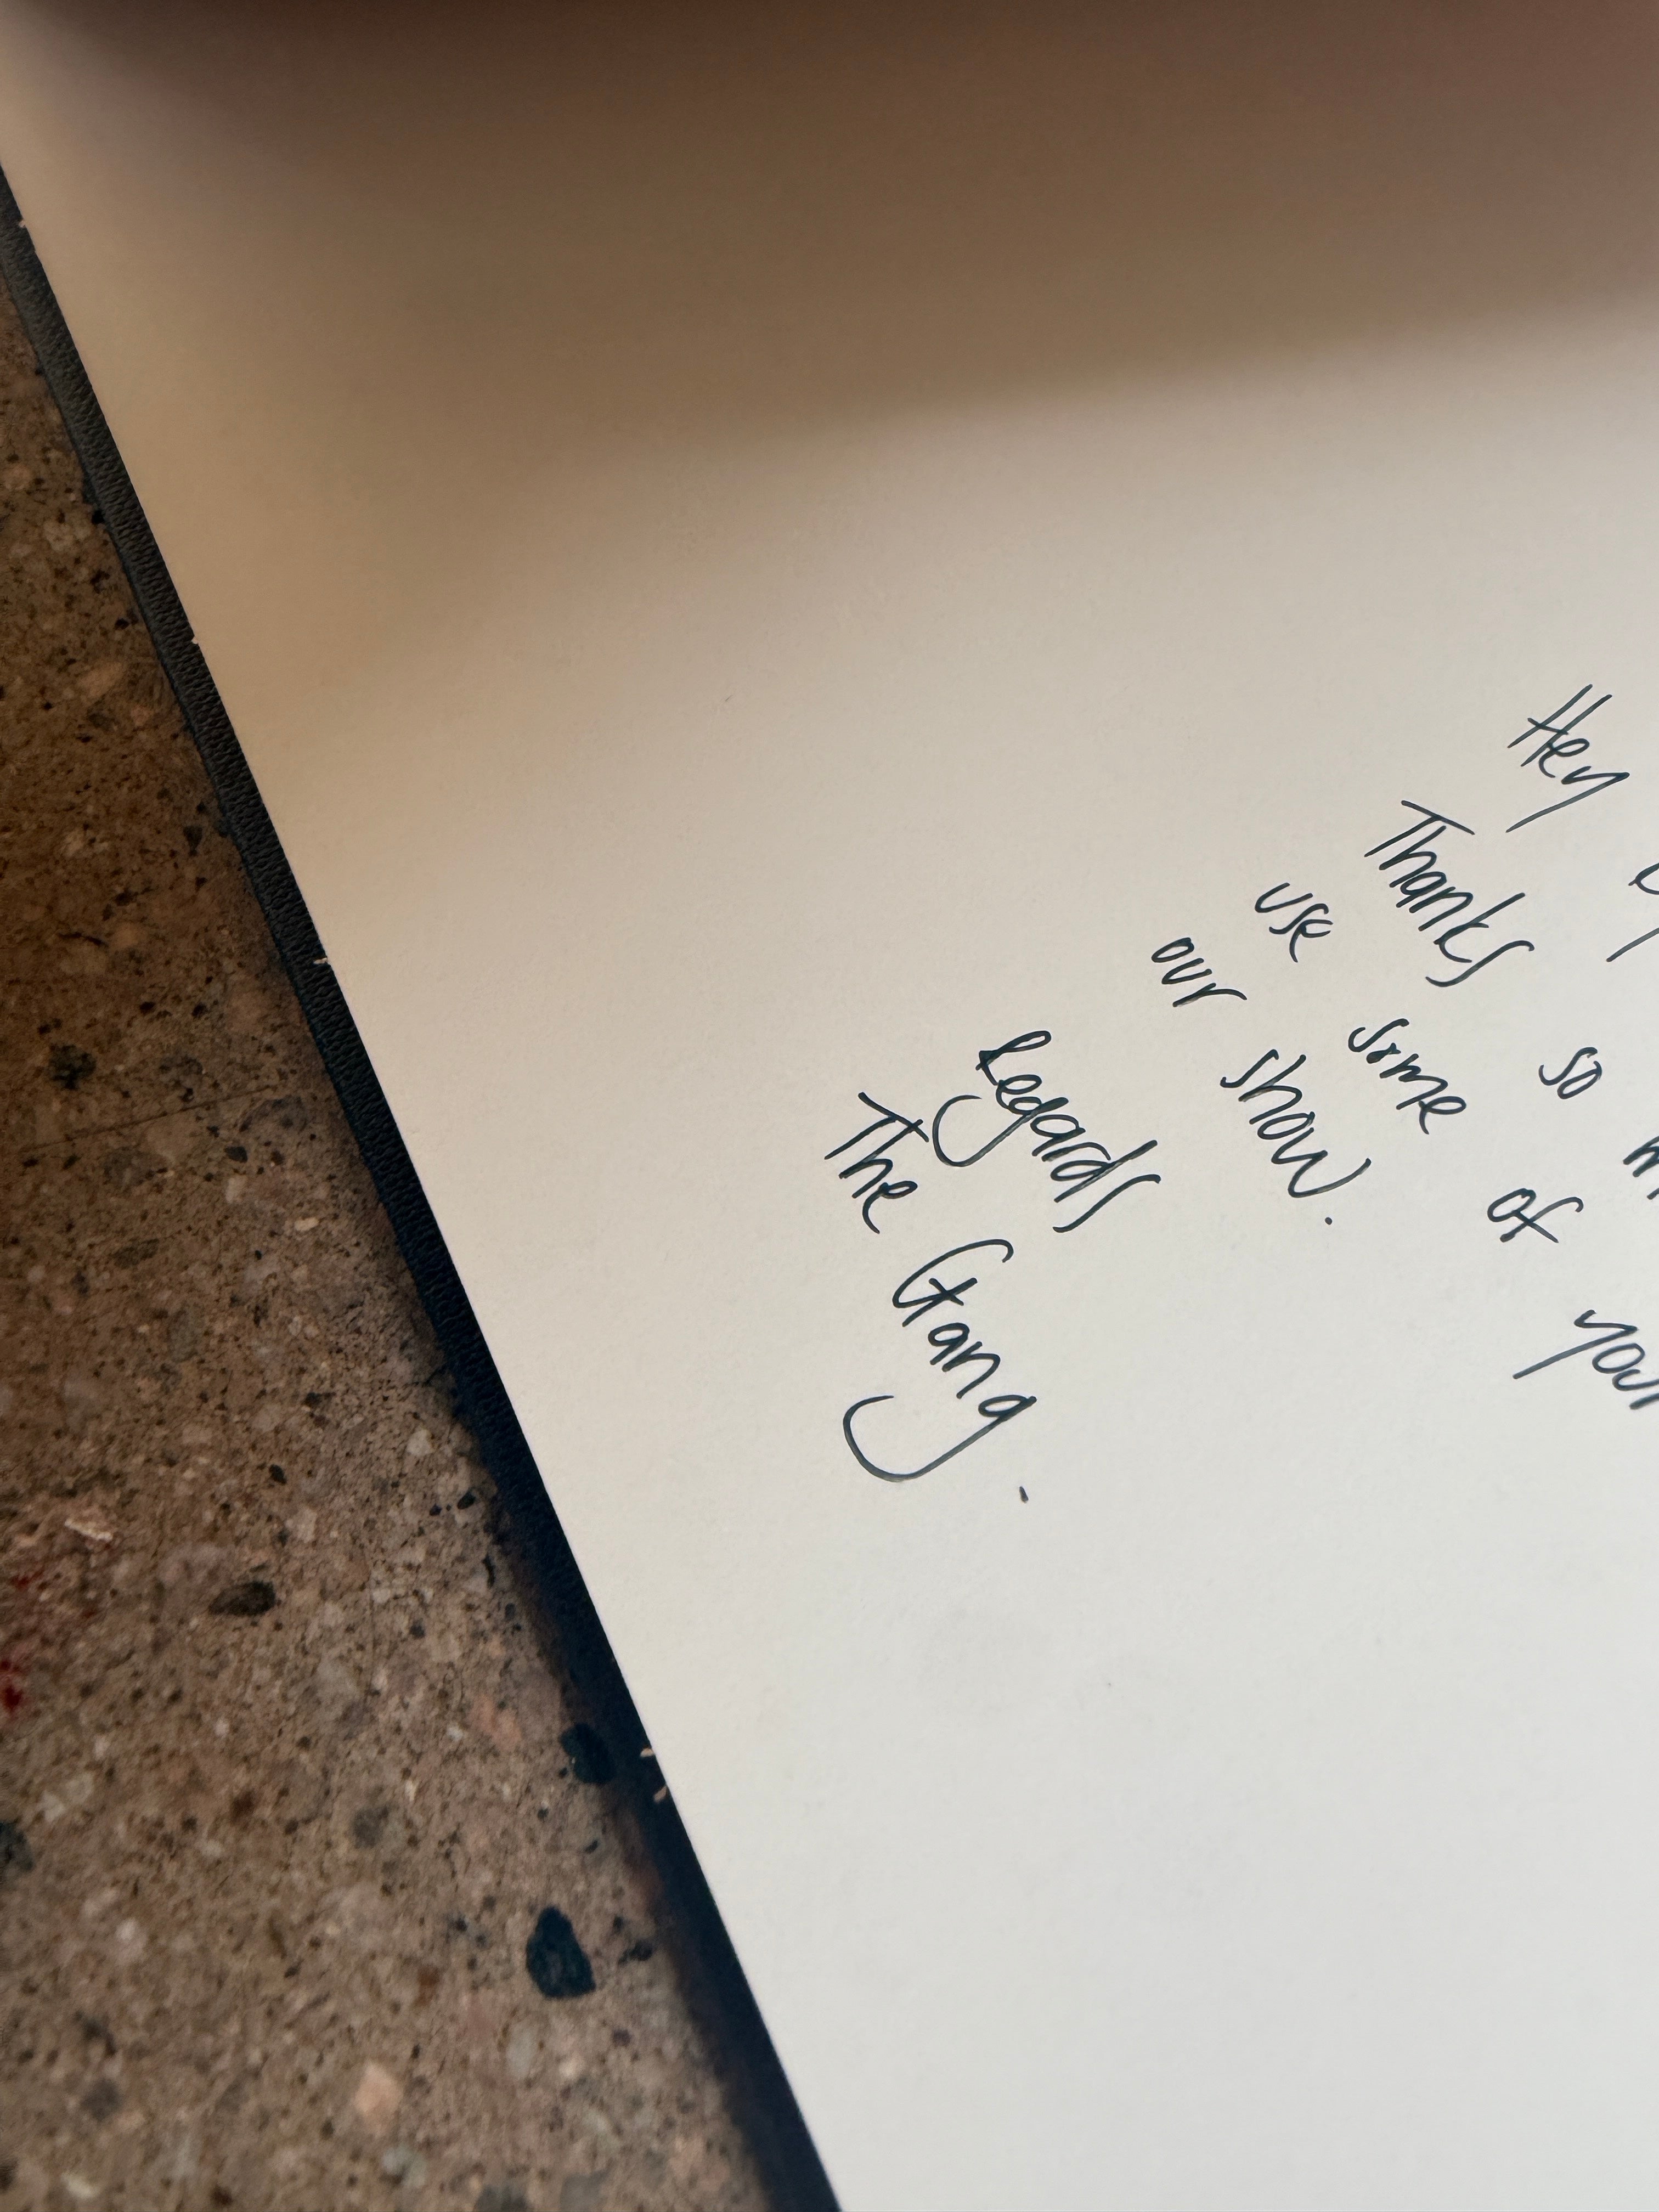 Hey
Thanks so
use some of your
our show.
Regards
The Gang.